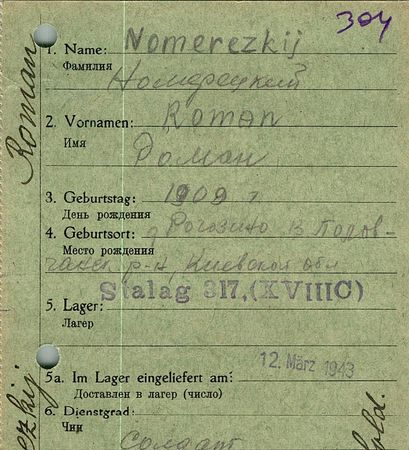 304
1. Name: Nomerezkij
Фамилия
Номерецкий
2. Vornamen: Roman
Имя
Роман
3. Geburtstag: 1909 г
День рождения
4. Geburtsort:
Место рождения
р-н, Киевской обл
Stalag 317,(XVIIIC)
5. Lager:
Лагер
12. März 1943
5a. Im Lager eingeliefert am:
Доставлен в лагер (число)
6. Dienstgrad:
Чин
солдат
Roman